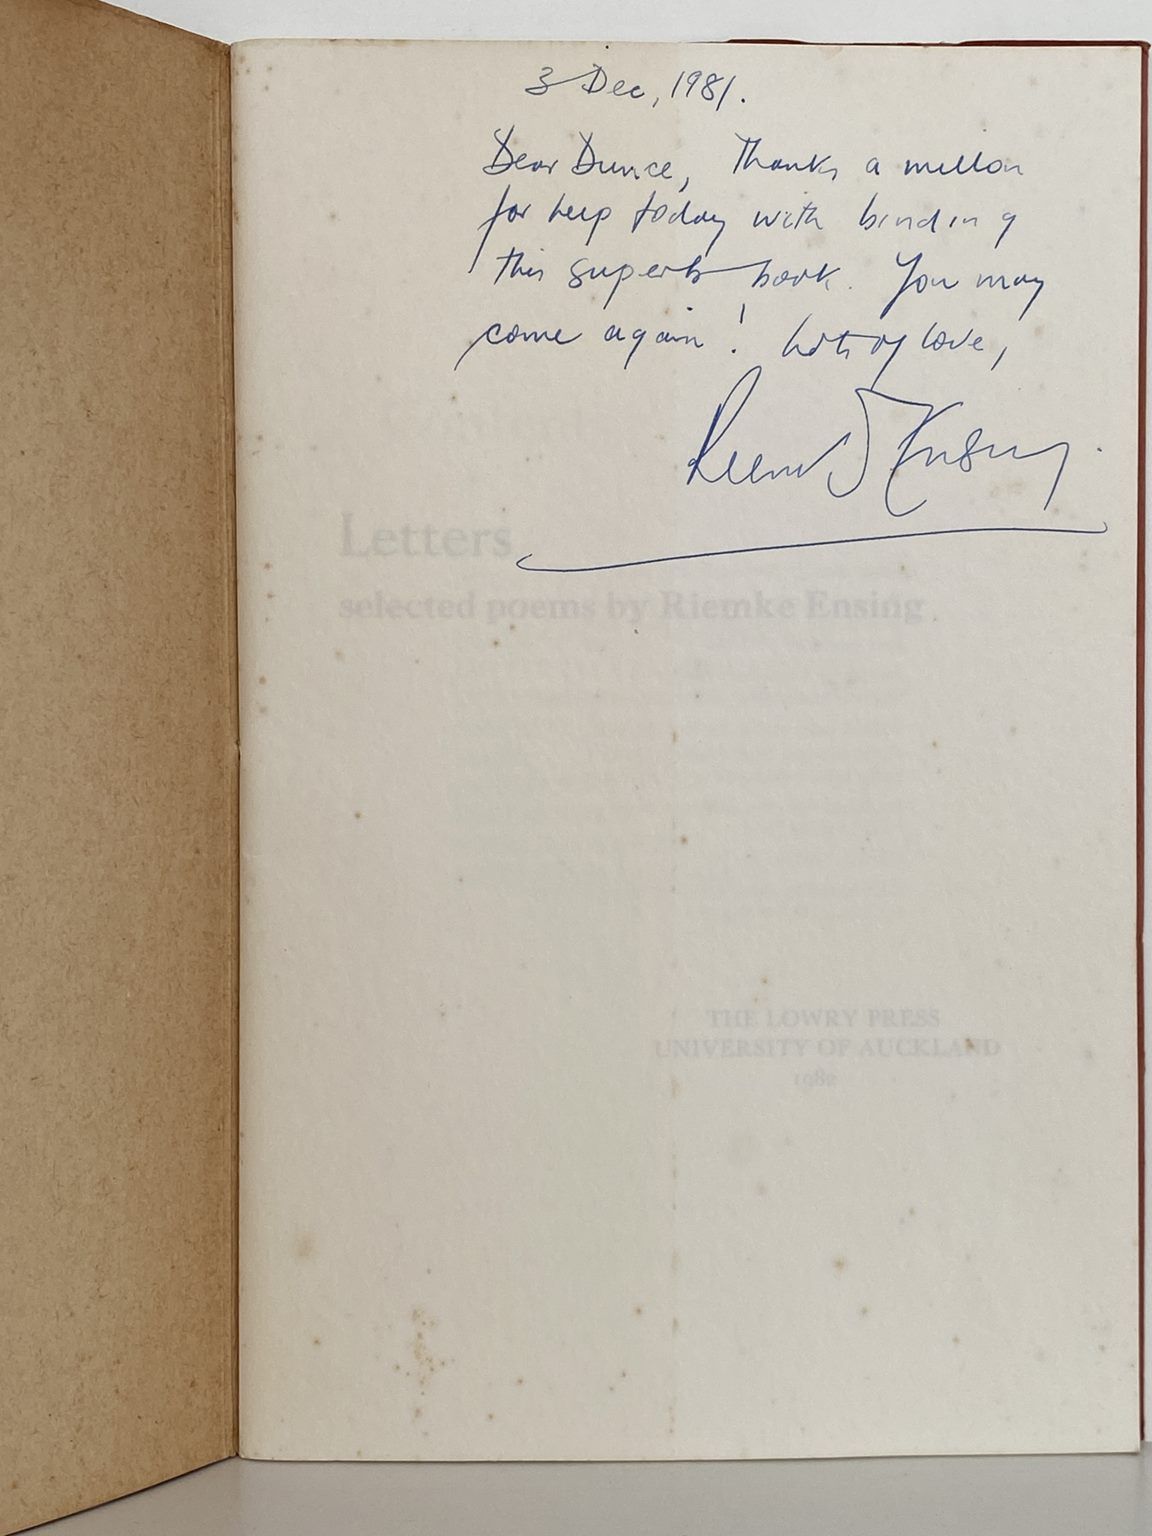 3 Dec, 1981.
Dear Dunce, Thanks a million
for help today with binding
this superb book. You may
come again! Lots of love,
Riemke Ensing.
Letters
selected poems by Riemke Ensing
THE LOWRY PRESS
UNIVERSITY OF AUCKLAND
1982